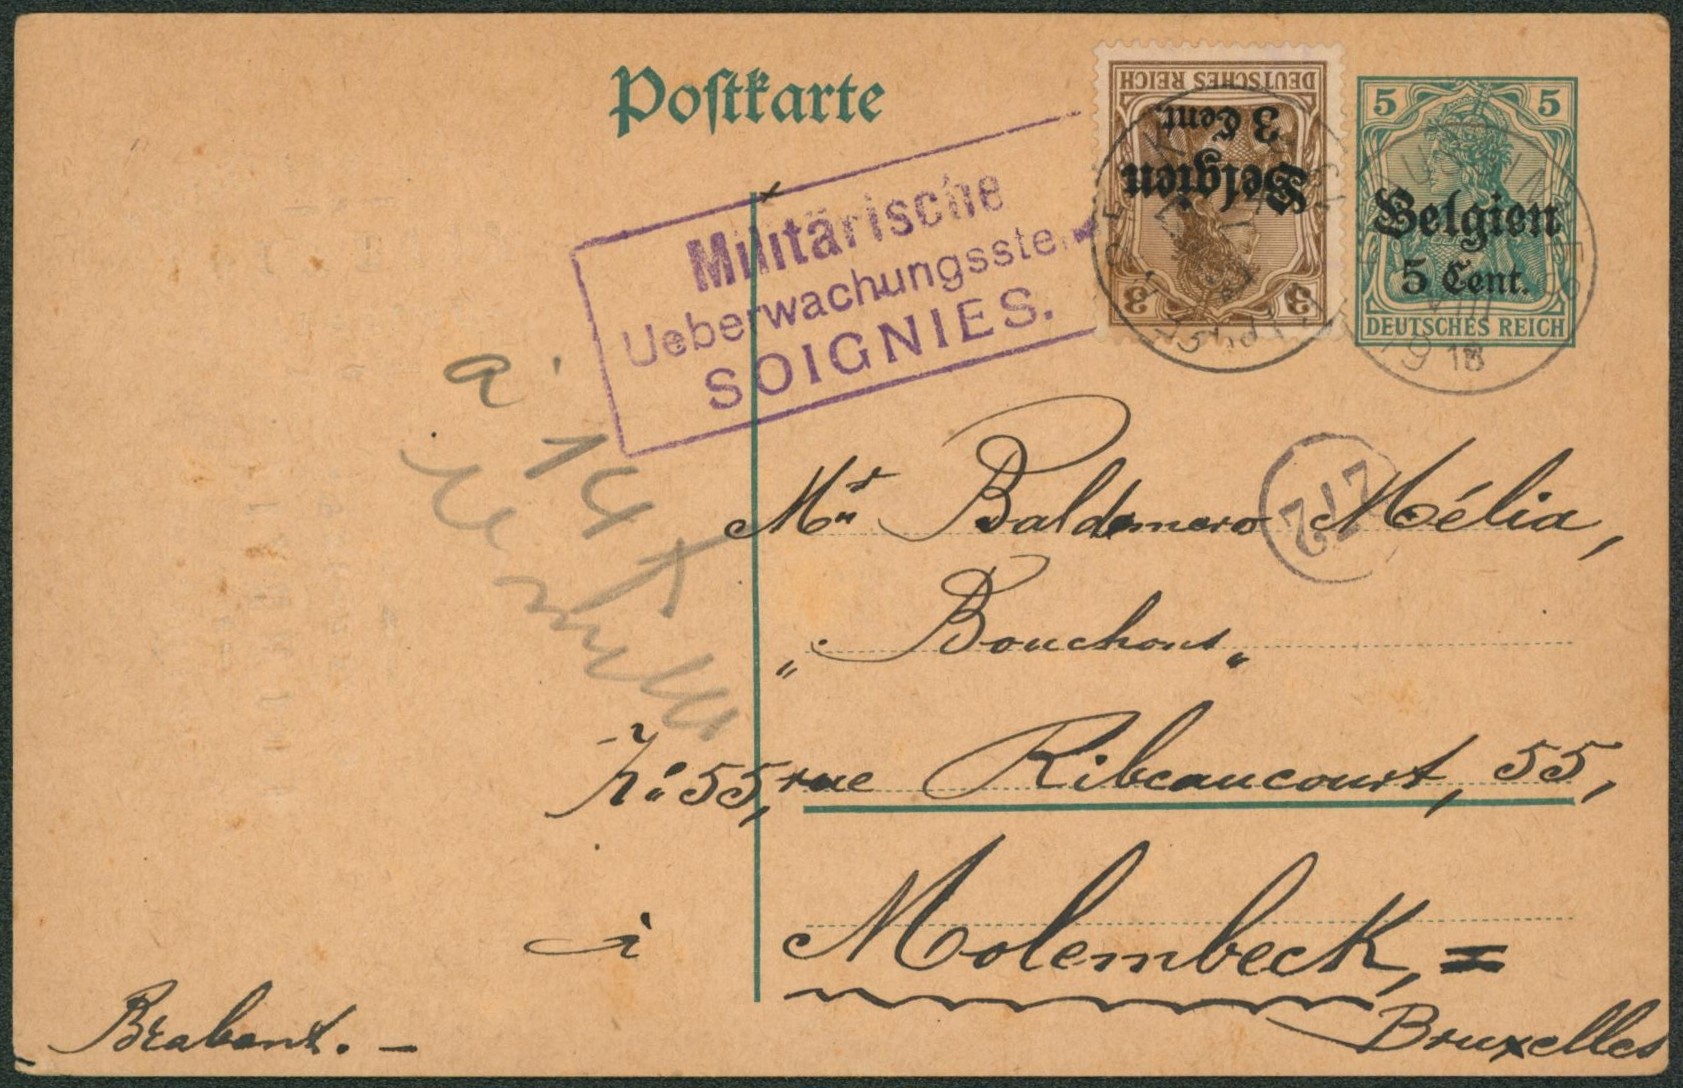 Postkarte
DEUTSCHES REICH
3 Cent.
Belgien
3 3
5 5
Belgien
5 Cent.
DEUTSCHES REICH
18
Militärische
Ueberwachungsste
SOIGNIES.
a
14
Mr Baldomero Mélia,
212
"Bouchons"
No: 55, rue Ribeaucourt, 55,
à Molembeck, =
Bruxelles
Brabant. -